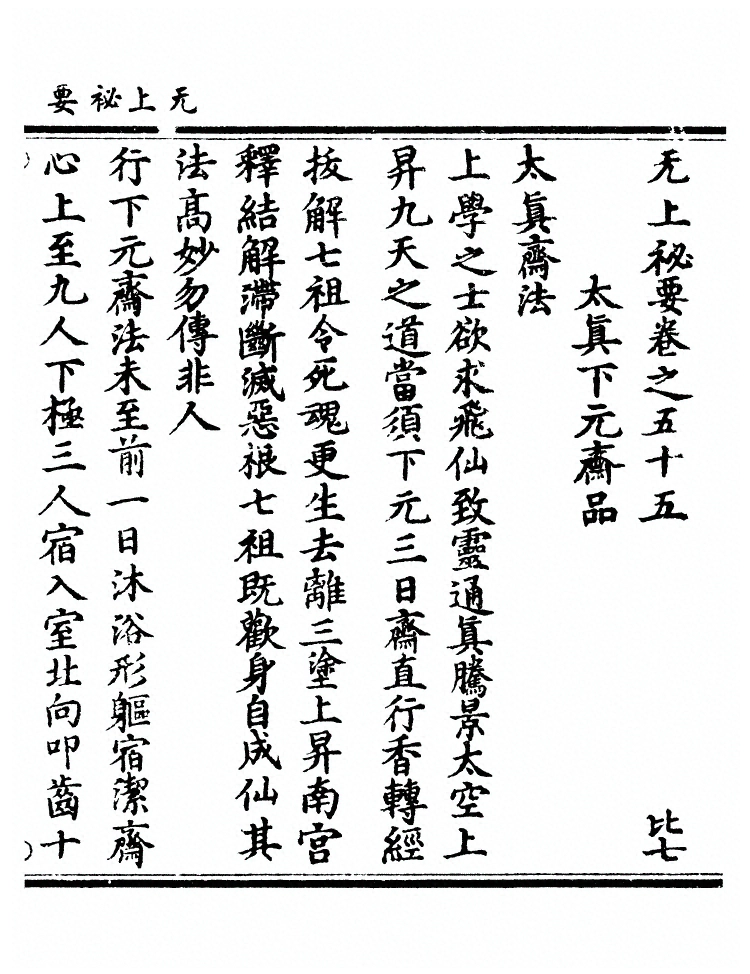 无上祕要
无上祕要卷之五十五
比七
太眞下元齋品
太眞齋法
上學之士欲求飛仙致靈通眞騰景太空上
昇九天之道當須下元三日齋直行香轉經
拔解七祖令死魂更生去離三塗上昇南宮
釋結解滯斷滅惡根七祖既歡身自成仙其
法高妙勿傳非人
行下元齋法未至前一日沐浴形軀宿潔齋
心上至九人下極三人宿入室北向叩齒十